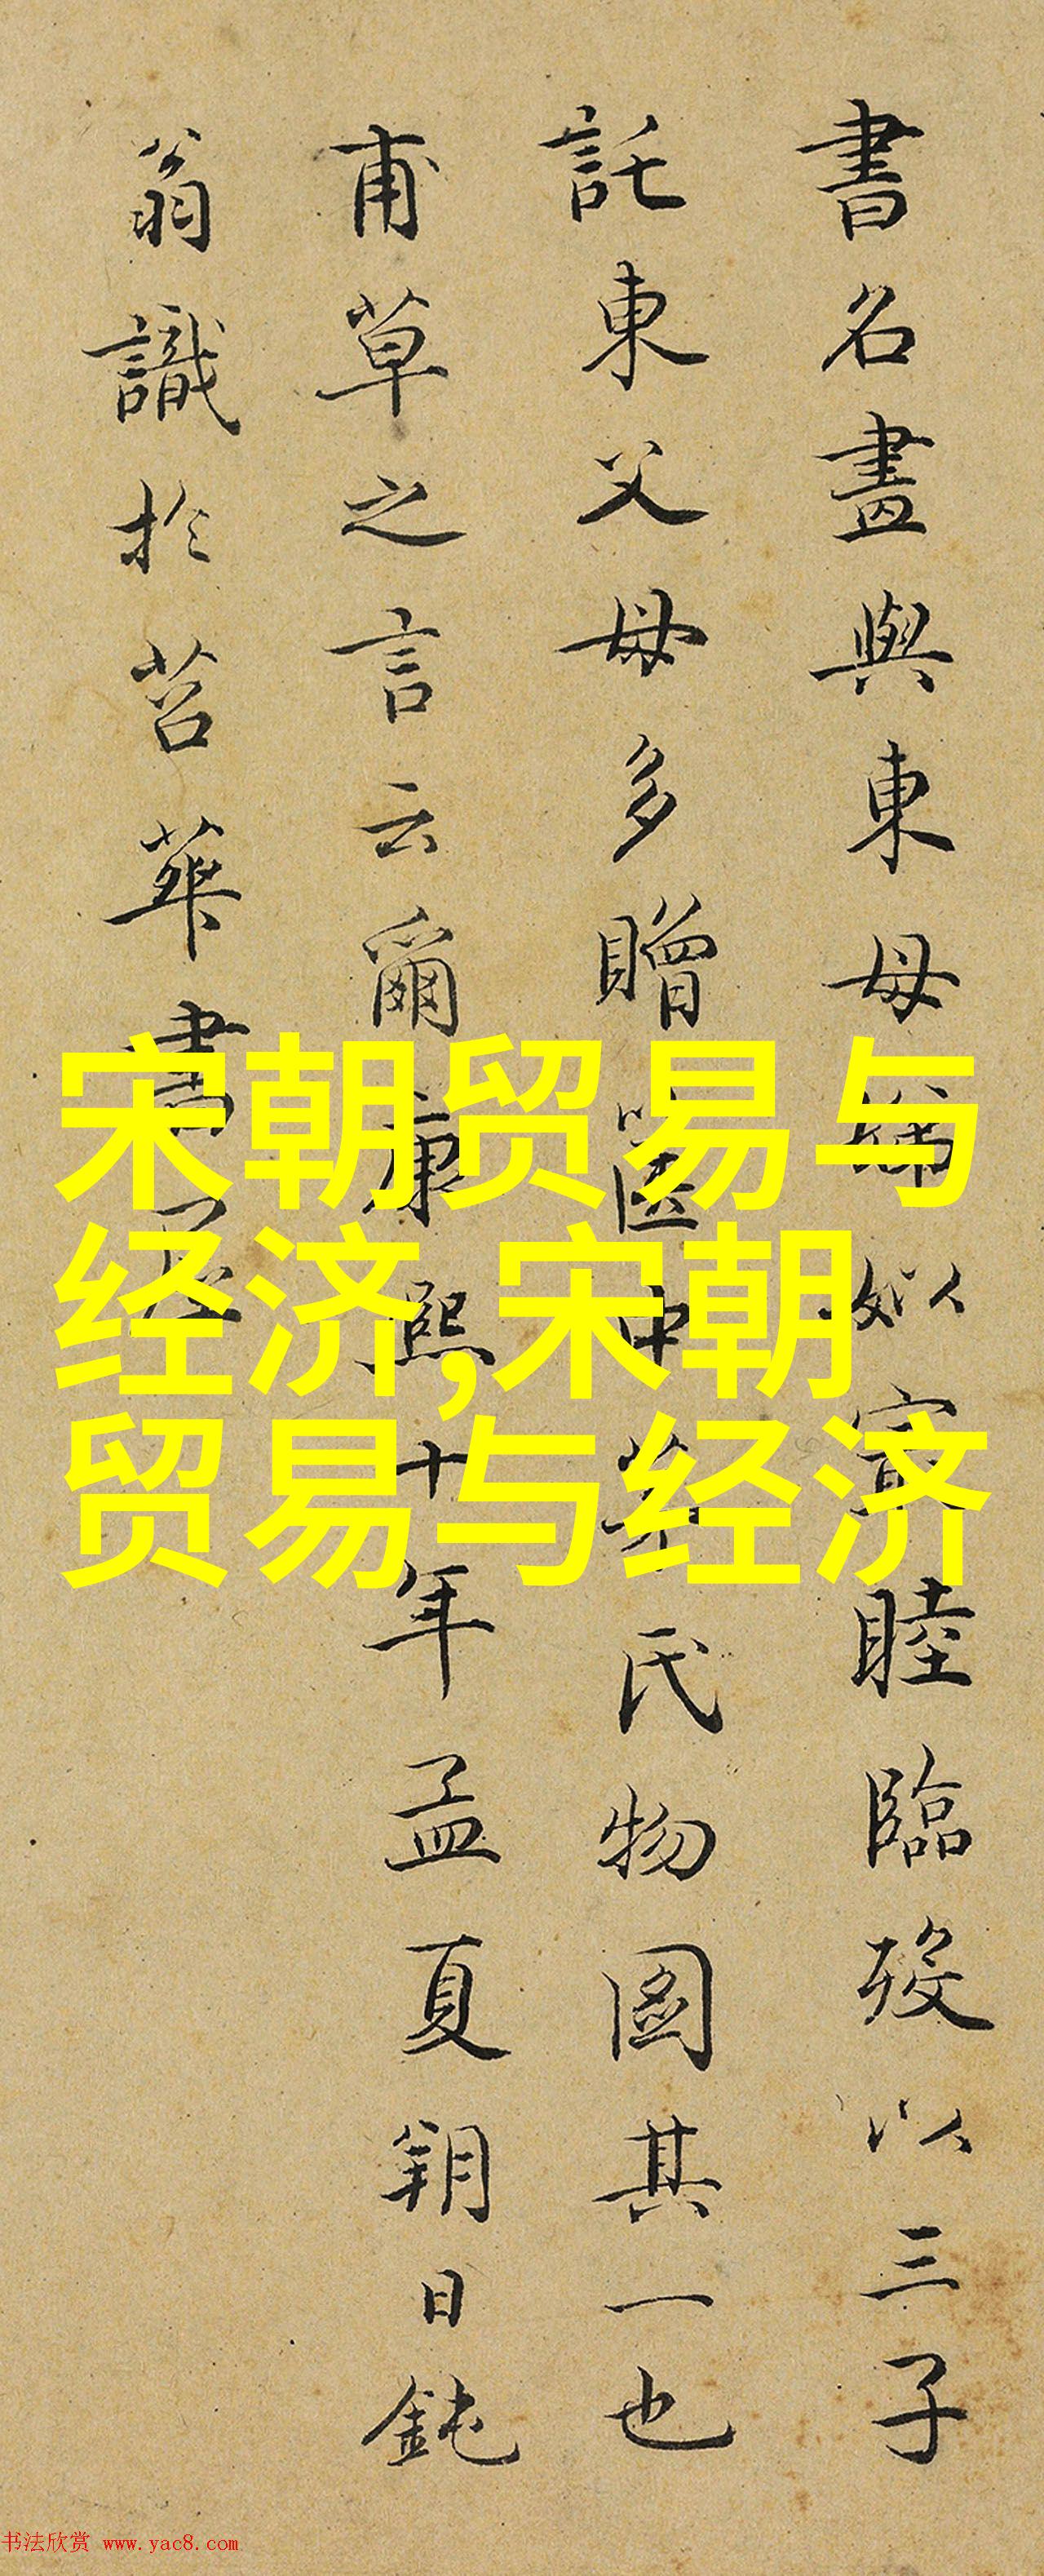 書名畫與東母娣姒宜睦臨歿以三子
託東父母多贈區中若氏物圖其一也
甫草之言云爾康熙十年孟夏朔日鈍
翁識於苕華書屋
宋朝贸易与
经济,宋朝
贸易与经济
书法欣赏 www.yac8.com